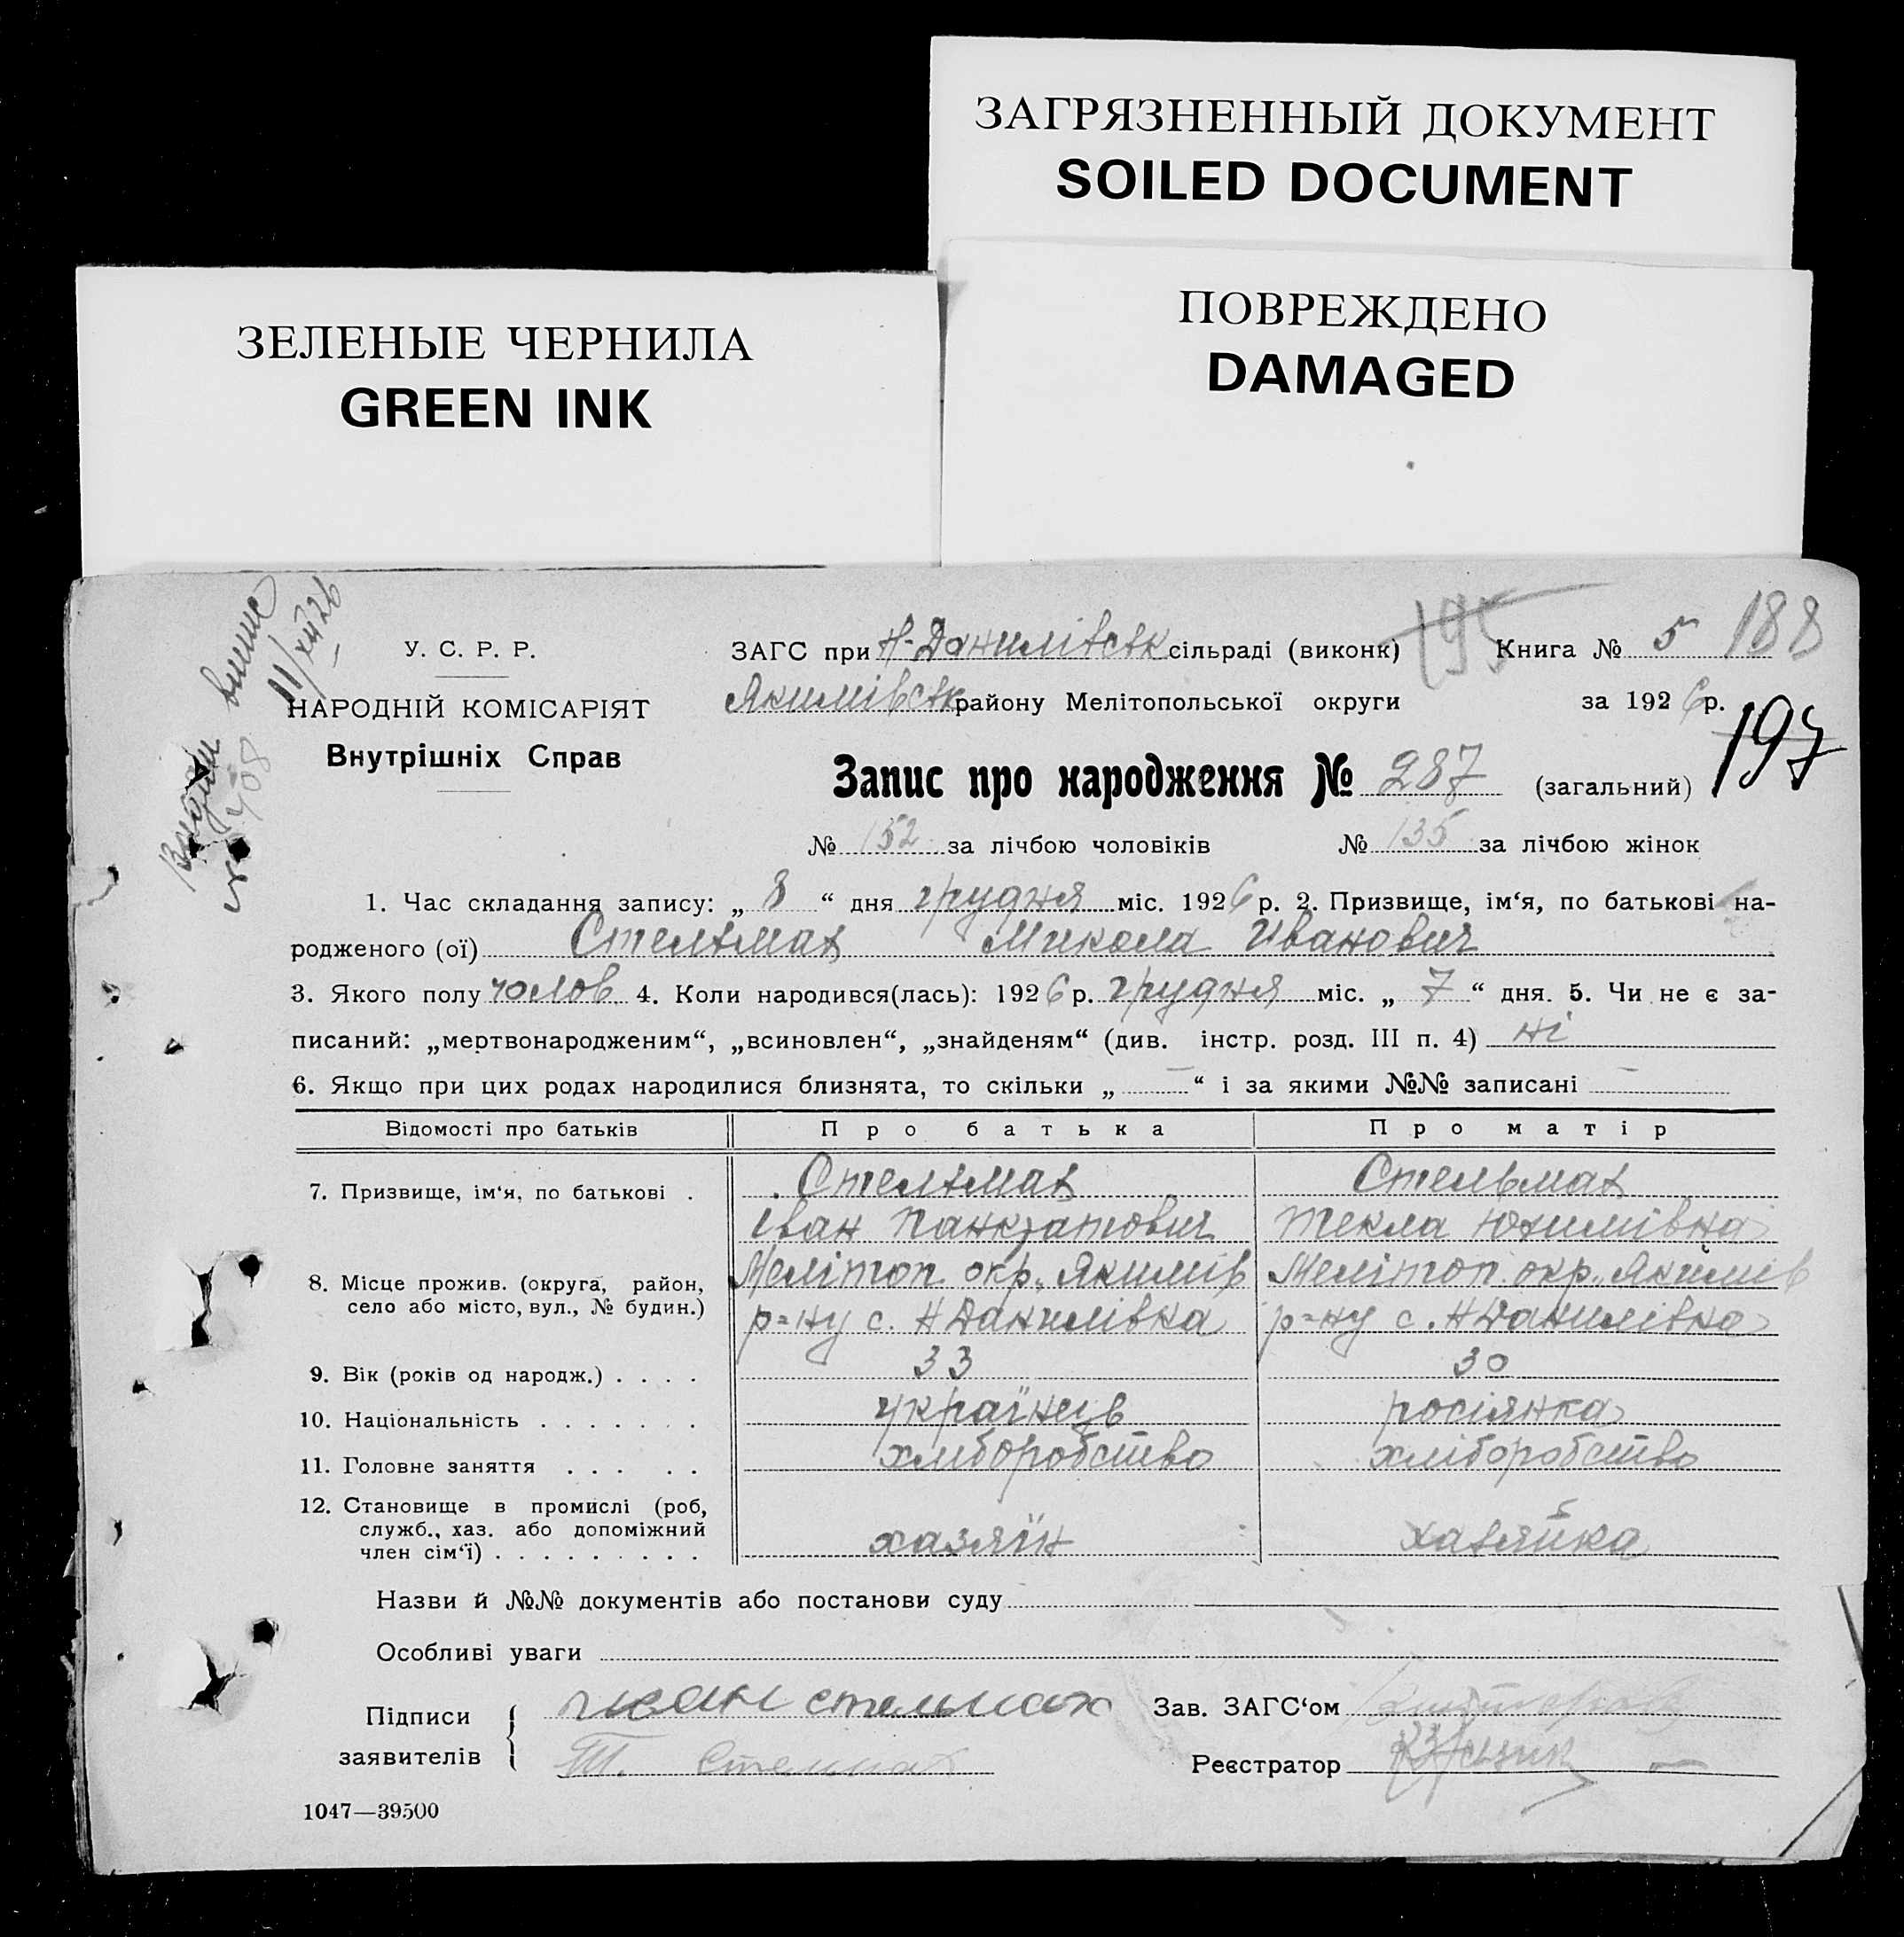 ЗАГРЯЗНЕННЫЙ ДОКУМЕНТ
SOILED DOCUMENT
ПОВРЕЖДЕНО
DAMAGED
ЗЕЛЕНЫЕ ЧЕРНИЛА
GREEN INK
Видан выпис
11/XII 26
№ 408
У. С. Р. Р.
НАРОДНІЙ КОМІСАРІЯТ
Внутрішніх Справ
ЗАГС при Н-Данилівськ сільраді (виконк) 195 Книга № 5 188
Якимівськ району Мелітопольської округи за 1926 р.
197
Запис про народження № 287 (загальний)
№ 152 за лічбою чоловіків № 135 за лічбою жінок
1. Час складання запису: „ 8 “ дня грудня міс. 1926 р. 2. Призвище, ім‘я, по батькові на-
родженого (ої) Стельмах Микола Иванович
3. Якого полу чолов 4. Коли народився(лась): 1926 р. грудня міс. „ 7 “ дня. 5. Чи не є за-
писаний: „мертвонародженим“, „всиновлен“, „знайденям“ (див. інстр. розд. III п. 4) ні
6. Якщо при цих родах народилися близнята, то скільки „ — “ і за якими №№ записані —
Відомості про батьків Про батька Про матір
7. Призвище, ім‘я, по батькові . Стельмах Стельмах
Іван Панкратович Текла Юхимівна
8. Місце прожив. (округа, район, Мелітоп. окр., Якимів Мелітоп. окр., Якимів
село або місто, вул., № будин.) р=ну с. Н Данилівка р=ну с. Н Данилівка
9. Вік (років од народж.) . . . . 33 30
10. Національність . . . . . . . українець росіянка
11. Головне заняття . . . . . хліборобство хліборобство
12. Становище в промислі (роб,
служб., хаз. або допоміжний
член сім‘ї) . . . . . . . . . хазяїн хазяйка
Назви й №№ документів або постанови суду
Особливі уваги
Підписи иван стельмах Зав. ЗАГС‘ом
заявителів Т. Стелмах Реєстратор
1047—39500